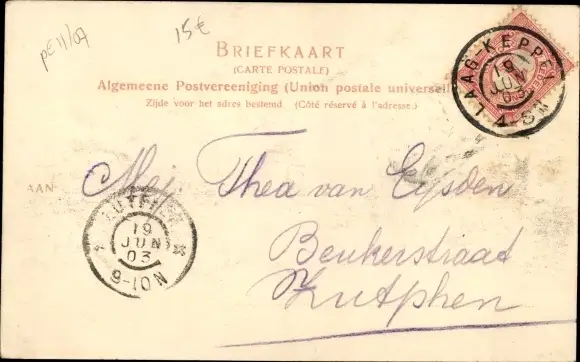 pE11/07
15€
BRIEFKAART
(CARTE POSTALE)
Algemeene Postvereeniging (Union postale universel
Zijde voor het adres bestemd (Côté réservé à l'adresse.)
LAAG-KEPPEL
19
JUN
03
4-5N
AAN
Mej. Thea van Eijsden
Beukerstraat
Zutphen
ZUTPHEN
19
JUN
03
9-10N